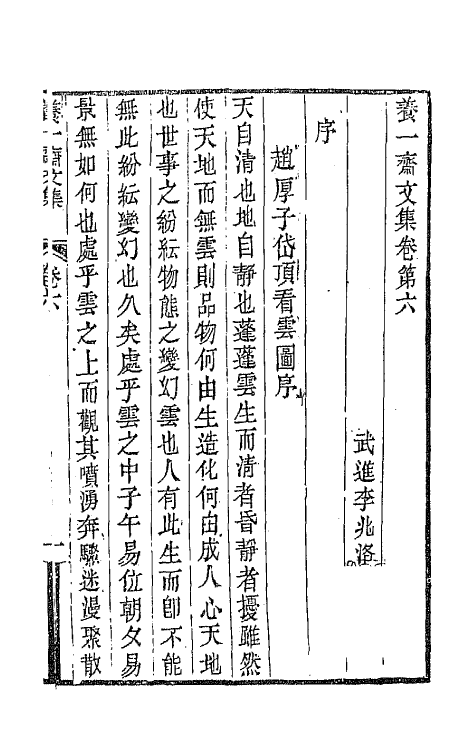 養一齋文集卷第六
武進李兆洛
序
趙厚子岱頂看雲圖序
天自清也地自靜也蓬蓬雲生而清者昏靜者擾雖然
使天地而無雲則品物何由生造化何由成人心天地
也世事之紛紜物態之變幻雲也人有此生而卽不能
無此紛紜變幻也久矣處乎雲之中子午易位朝夕易
景無如何也處乎雲之上而觀其噴湧奔驟迷漫聚散
養一齋文集
卷六
一